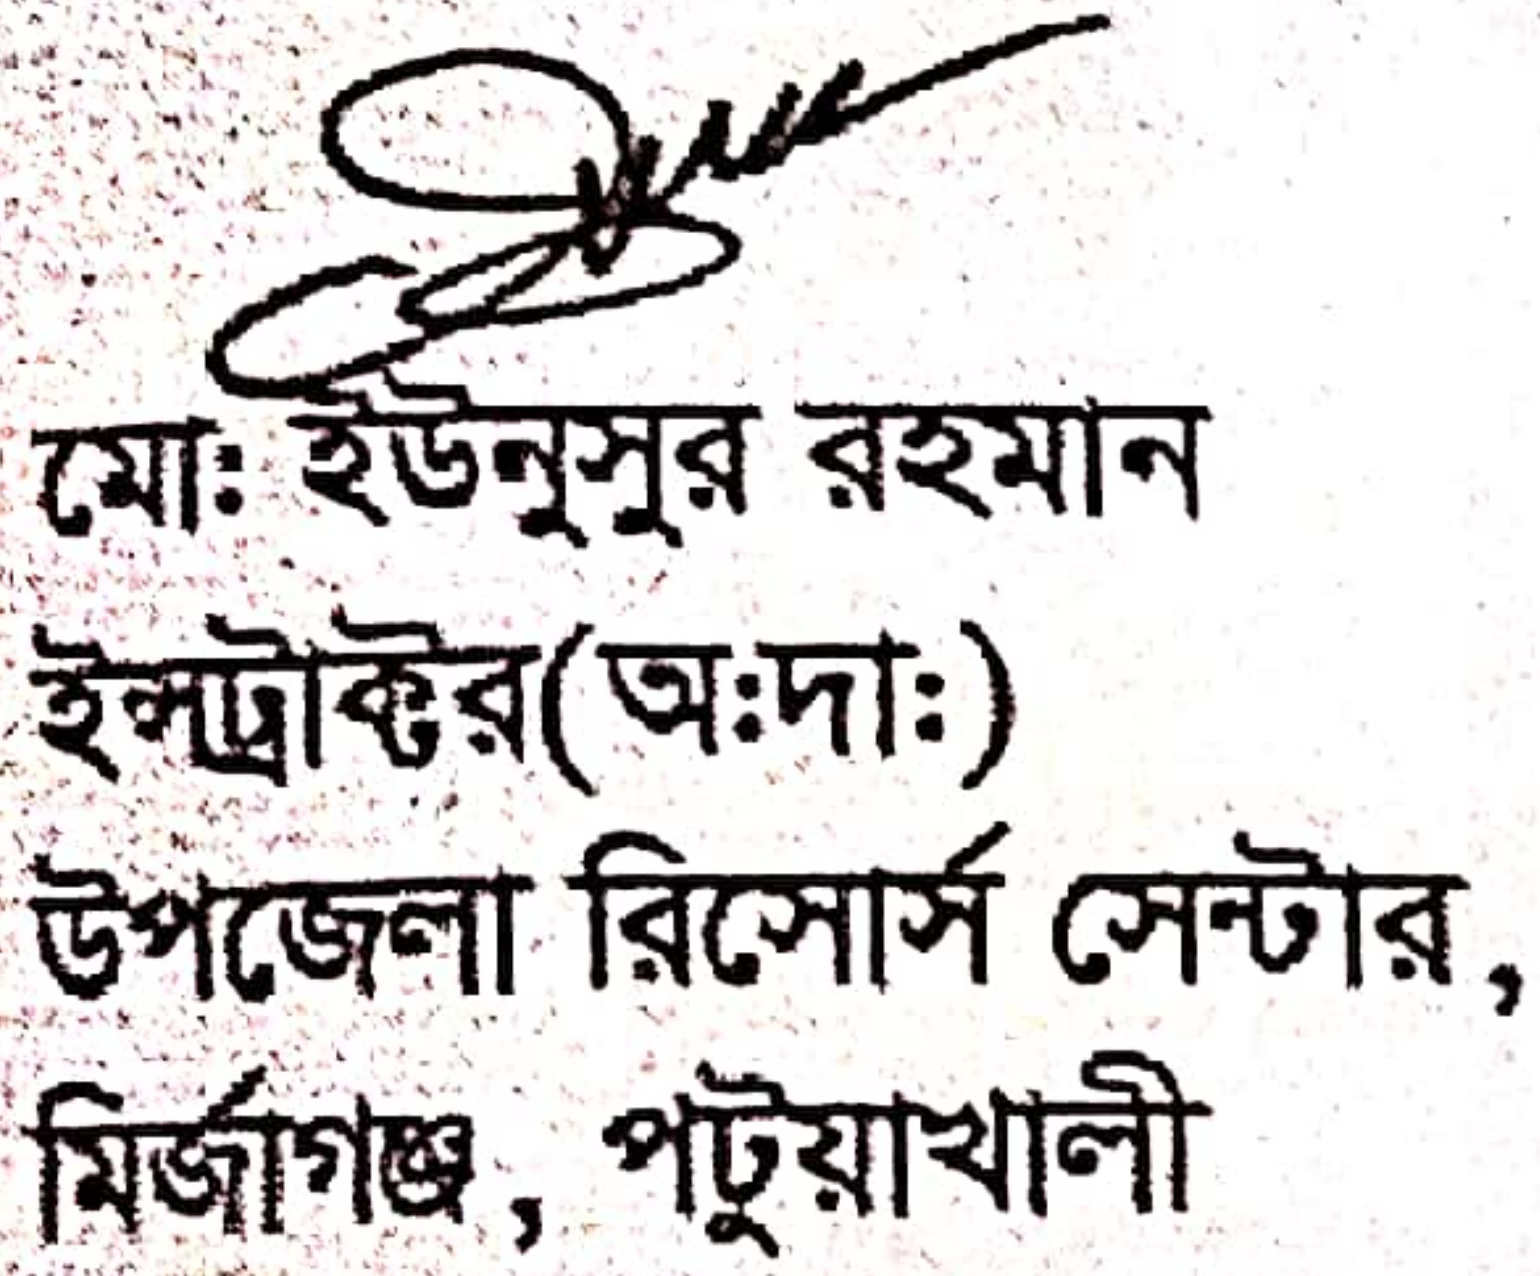 মোঃ ইউনুসুর রহমান
ইন্সট্রাক্টর(অঃদাঃ)
উপজেলা রিসোর্স সেন্টার,
মির্জাগঞ্জ, পটুয়াখালী